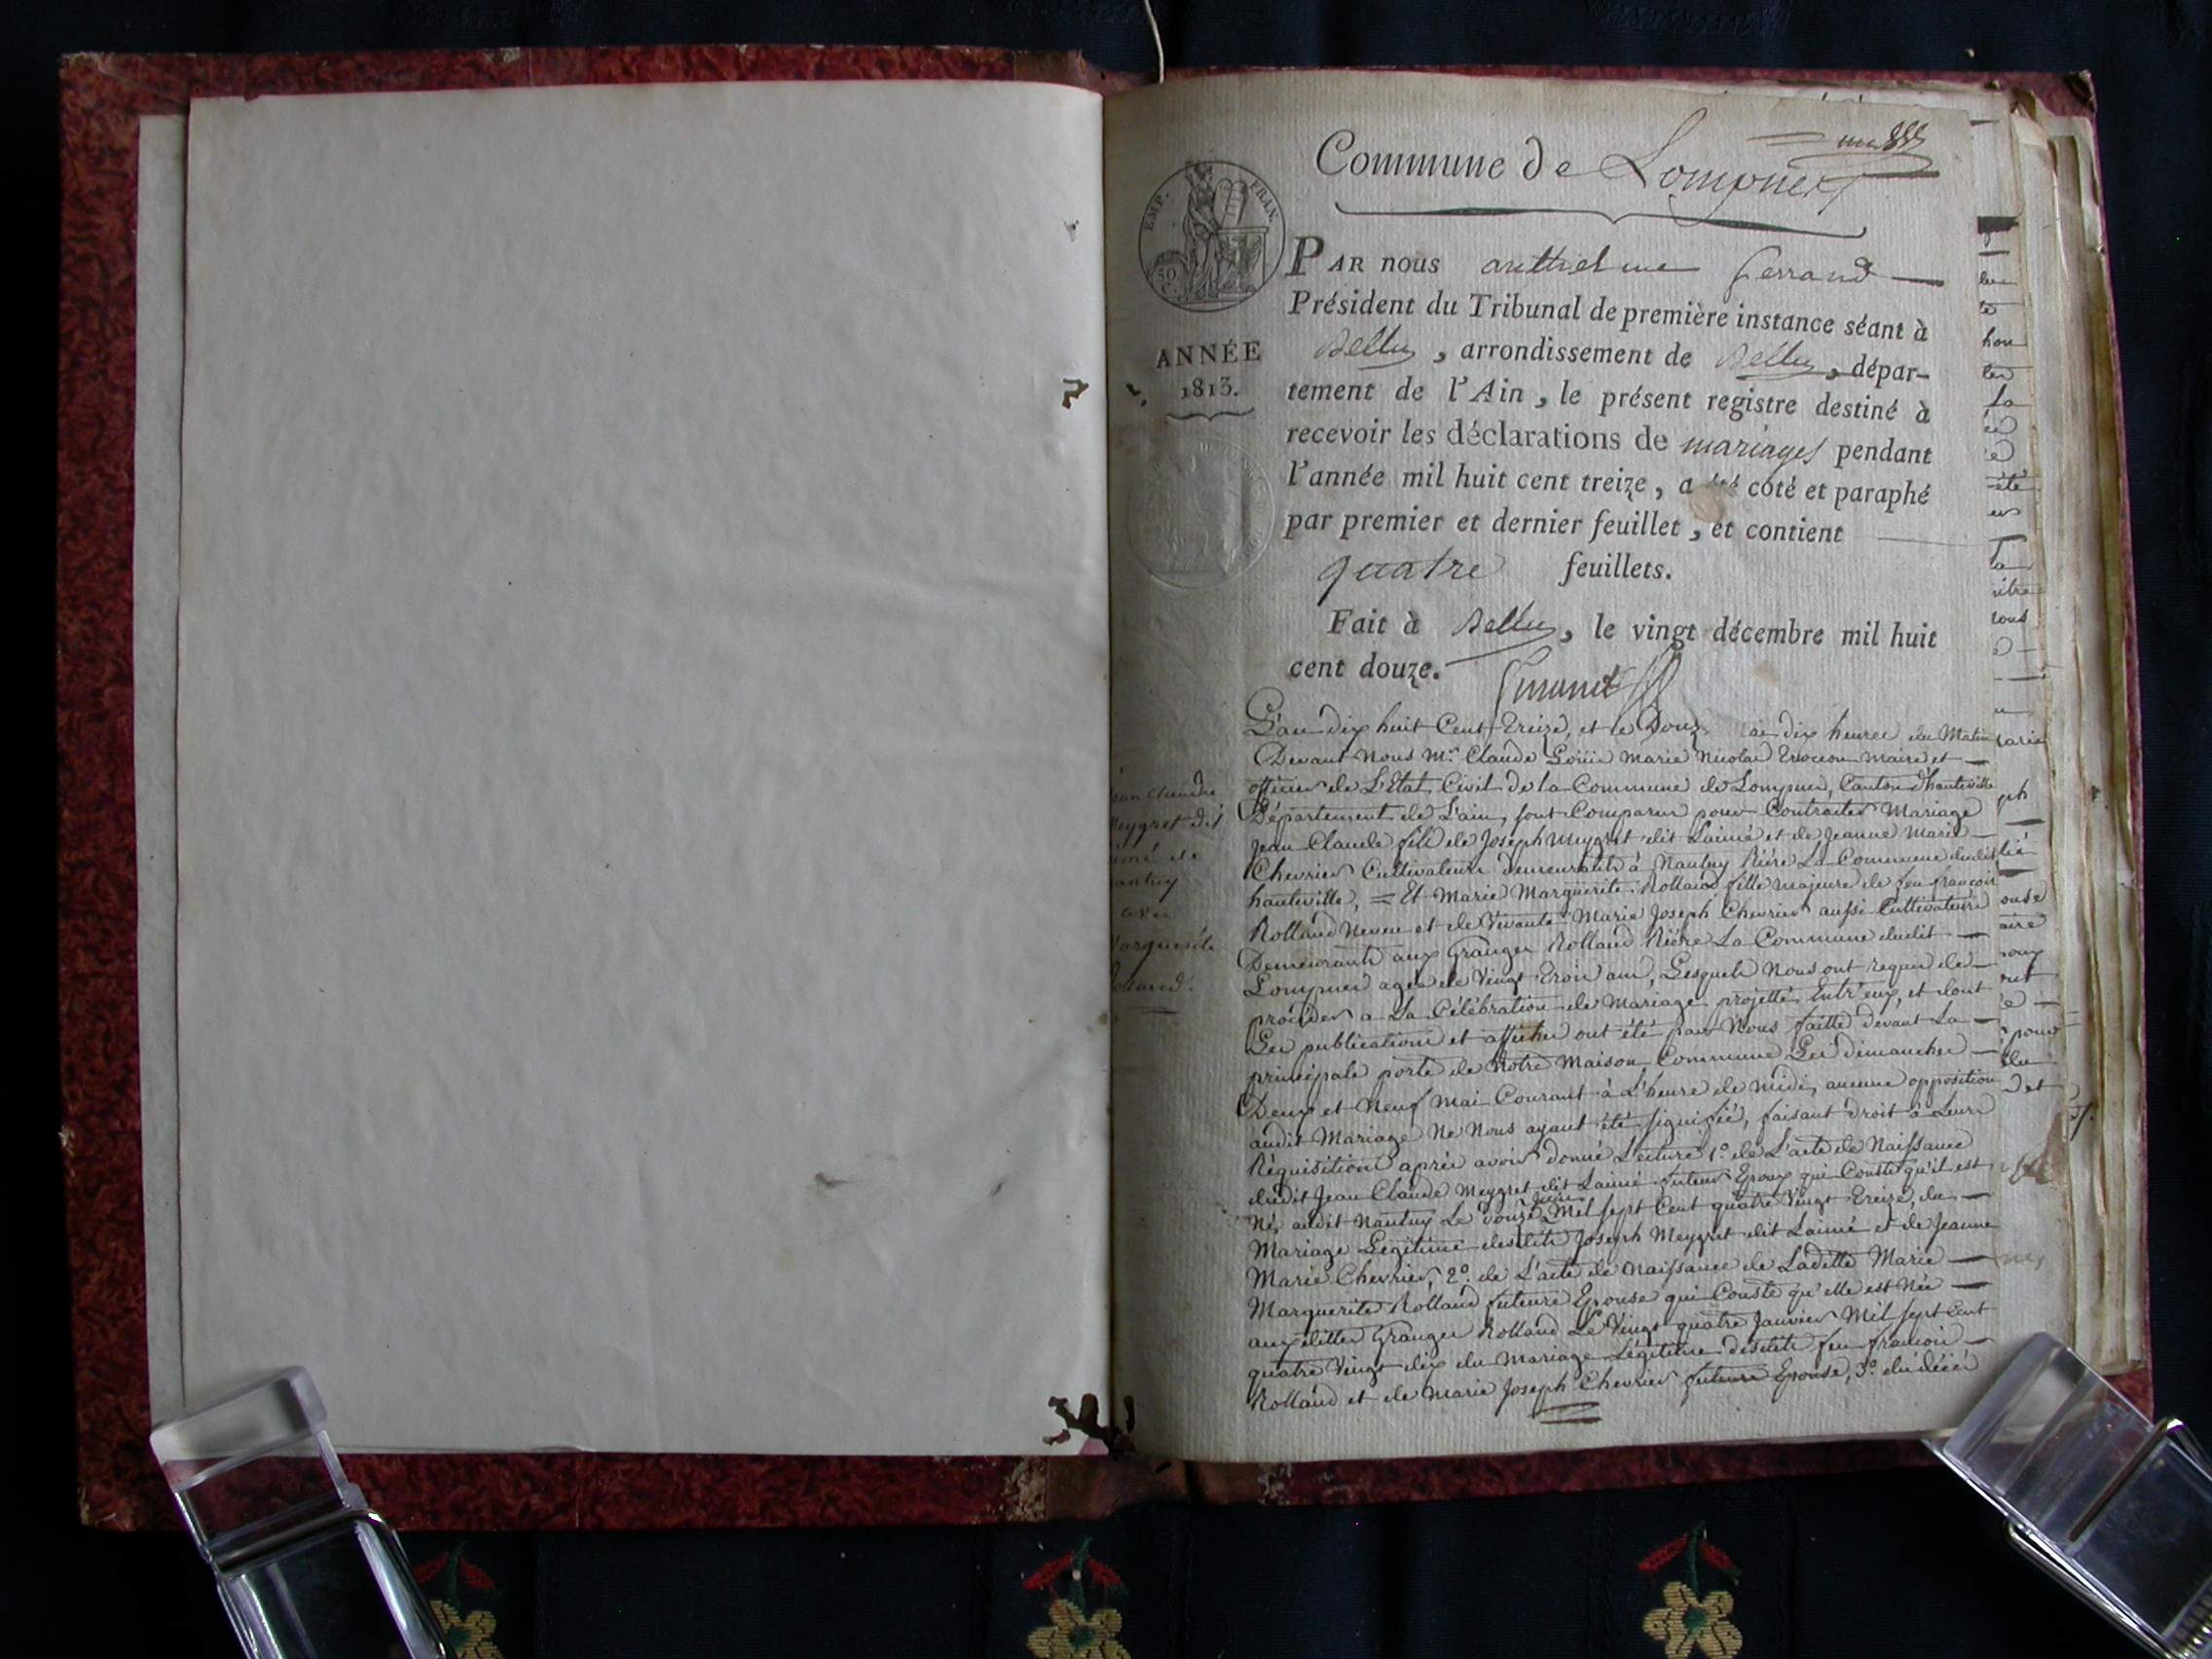 Commune de Lompnes
EMP. FRAN.
50 C.
ANNÉE
1813.
PAR nous anthelme ferrand
Président du Tribunal de première instance séant à
Belley, arrondissement de Belley, dépar-
tement de l'Ain, le présent registre destiné à
recevoir les déclarations de mariages pendant
l'année mil huit cent treize, a été coté et paraphé
par premier et dernier feuillet, et contient
quatre feuillets.
Fait à Belley, le vingt décembre mil huit
cent douze.
Jean Claude
Meygret dit
aimé de
antuy
avec
Marguerite
olland.
L'an dix huit Cent Treize, et le Douze mai dix heures du Matin
Devant Nous Mr. Claude Louis Marie Nicolas Maire et
officier de L'Etat Civil de la Commune de Lompnes, Canton d'hauteville
Département de L'ain, sont Comparus pour Contracter Mariage
Jean Claude fils de Joseph Meygret dit Laimé et de Jeanne Marie
Chevrier Cultivateurs demeurants à Nantuy Rière La Commune dudit
hauteville, = Et Marie Marguerite Rolland fille majeure de feu françois
Rolland Neveu et de Vivante Marie Joseph Chevrier aussi Cultivateurs
Demeurants aux Granges Rolland Rière La Commune dudit
Lompnes agée de Vingt Trois ans, Lesquels Nous ont requis de
procéder a La Célébration de Mariage projetté Entr'eux, et dont
Les publications et affiches ont été par Nous faittes devant La
principale porte de Notre Maison Commune Les dimanches
Deux et Neuf Mai Courant à L'heure de midi, aucune opposition
audit Mariage Ne Nous ayant été signifiée, faisant droit à Leurs
Réquisitions après avoir donné Lecture 1°. de L'acte de Naissance
dudit Jean Claude Meygret dit Laimé futur Epoux qui Conste qu'il est
Né audit Nantuy Le douze juin Mil sept Cent quatre Vingt Treize, du
Mariage Légitime desdits Joseph Meygret dit Laimé et de Jeanne
Marie Chevrier, 2°. de L'acte de Naissance de Laditte Marie
Marguerite Rolland future Epouse qui Conste qu'elle est Née
aux dittes Granges Rolland Le Vingt quatre Janvier Mil sept Cent
quatre Vingt dix du Mariage Légitime desdits feu françois
Rolland et de Marie Joseph Chevrier future Epouse, 3°. du décés